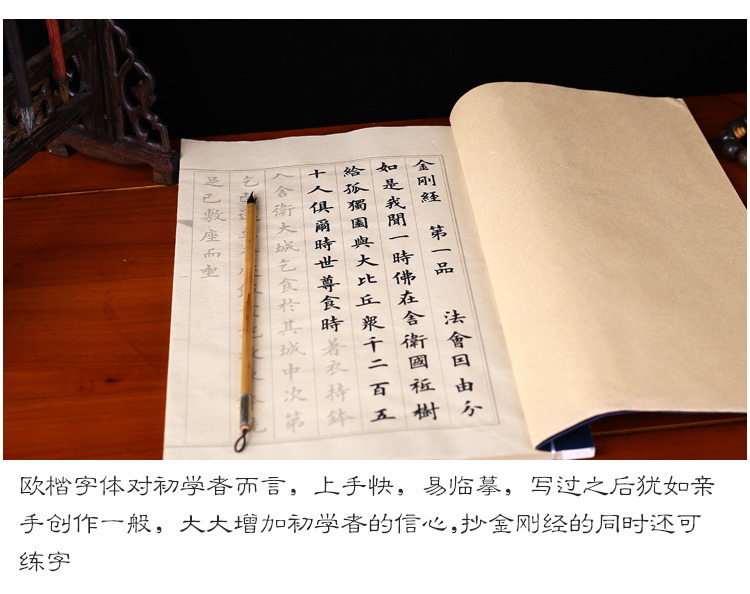 金剛經 第一品 法會因由分
如是我聞一時佛在舍衛國祇樹
給孤獨園與大比丘衆千二百五
十人俱爾時世尊食時著衣持鉢
入舍衛大城乞食於其城中次第
乞已
足已敷座而坐
欧楷字体对初学者而言，上手快，易临摹，写过之后犹如亲
手创作一般，大大增加初学者的信心,抄金刚经的同时还可
练字